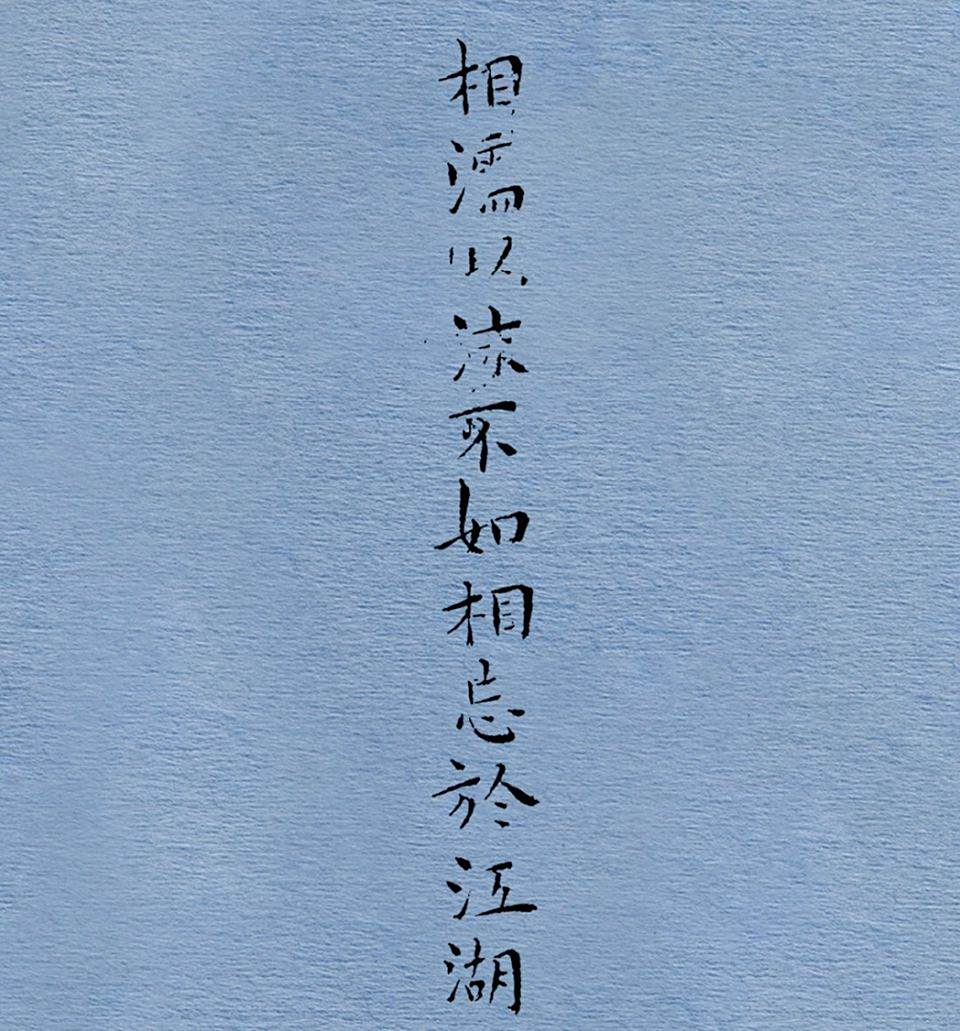 相濡以沫不如相忘於江湖